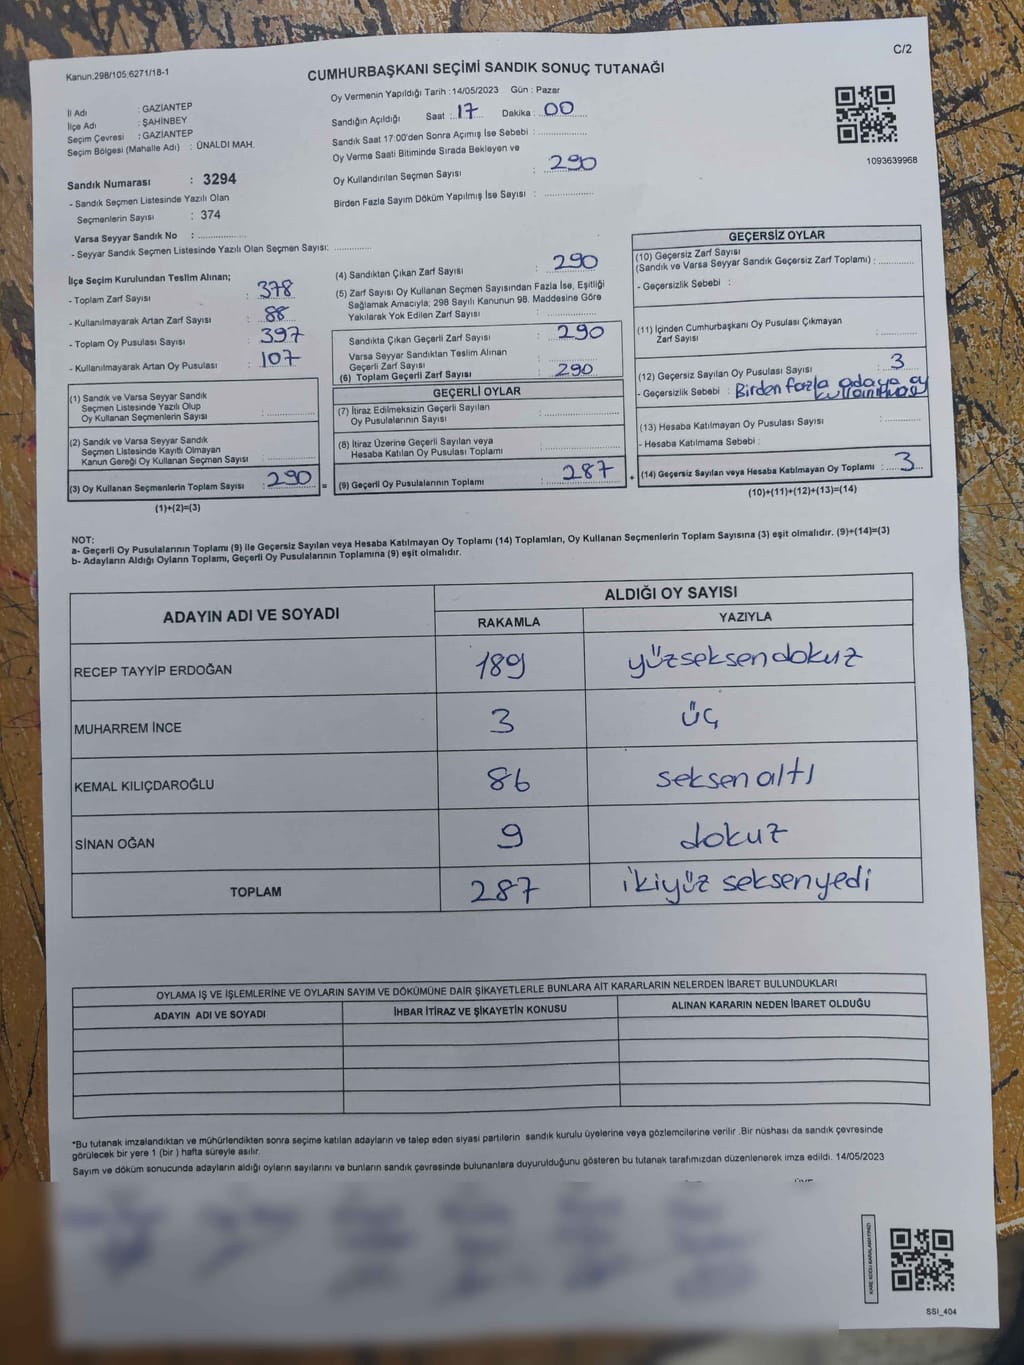 C/2
Kanun:298/105,6271/18-1
CUMHURBAŞKANI SEÇİMİ SANDIK SONUÇ TUTANAĞI
Oy Vermenin Yapıldığı Tarih :14/05/2023 Gün : Pazar
İl Adı : GAZİANTEP
İlçe Adı : ŞAHİNBEY
Seçim Çevresi : GAZİANTEP
Seçim Bölgesi (Mahalle Adı) : ÜNALDI MAH.
Sandığın Açıldığı Saat : 17 Dakika : 00
Sandık Saat 17:00'den Sonra Açımış İse Sebebi :
Oy Verme Saati Bitiminde Sırada Bekleyen ve
Oy Kullandırılan Seçmen Sayısı : 290
Birden Fazla Sayım Döküm Yapılmış İse Sayısı :
1093639968
Sandık Numarası : 3294
- Sandık Seçmen Listesinde Yazılı Olan
Seçmenlerin Sayısı : 374
Varsa Seyyar Sandık No :
- Seyyar Sandık Seçmen Listesinde Yazılı Olan Seçmen Sayısı:
İlçe Seçim Kurulundan Teslim Alınan;
- Toplam Zarf Sayısı : 378
- Kullanılmayarak Artan Zarf Sayısı : 88
- Toplam Oy Pusulası Sayısı : 397
- Kullanılmayarak Artan Oy Pusulası : 107
(1) Sandık ve Varsa Seyyar Sandık
Seçmen Listesinde Yazılı Olup
Oy Kullanan Seçmenlerin Sayısı :
(2) Sandık ve Varsa Seyyar Sandık
Seçmen Listesinde Kayıtlı Olmayan
Kanun Gereği Oy Kullanan Seçmen Sayısı :
(3) Oy Kullanan Seçmenlerin Toplam Sayısı : 290 =
(1)+(2)=(3)
(4) Sandıktan Çıkan Zarf Sayısı : 290
(5) Zarf Sayısı Oy Kullanan Seçmen Sayısından Fazla İse, Eşitliği
Sağlamak Amacıyla; 298 Sayılı Kanunun 98. Maddesine Göre
Yakılarak Yok Edilen Zarf Sayısı :
Sandıkta Çıkan Geçerli Zarf Sayısı : 290
Varsa Seyyar Sandıktan Teslim Alınan
Geçerli Zarf Sayısı :
(6) Toplam Geçerli Zarf Sayısı : 290
GEÇERLİ OYLAR
(7) İtiraz Edilmeksizin Geçerli Sayılan
Oy Pusulalarının Sayısı :
(8) İtiraz Üzerine Geçerli Sayılan veya
Hesaba Katılan Oy Pusulası Toplamı :
(9) Geçerli Oy Pusulalarının Toplamı : 287 +
GEÇERSİZ OYLAR
(10) Geçersiz Zarf Sayısı
(Sandık ve Varsa Seyyar Sandık Geçersiz Zarf Toplamı) :
- Geçersizlik Sebebi :
(11) İçinden Cumhurbaşkanı Oy Pusulası Çıkmayan
Zarf Sayısı :
(12) Geçersiz Sayılan Oy Pusulası Sayısı : 3
- Geçersizlik Sebebi : Birden fazla adaya oy
kullanılması
(13) Hesaba Katılmayan Oy Pusulası Sayısı :
- Hesaba Katılmama Sebebi :
(14) Geçersiz Sayılan veya Hesaba Katılmayan Oy Toplamı : 3
(10)+(11)+(12)+(13)=(14)
NOT:
a- Geçerli Oy Pusulalarının Toplamı (9) ile Geçersiz Sayılan veya Hesaba Katılmayan Oy Toplamı (14) Toplamları, Oy Kullanan Seçmenlerin Toplam Sayısına (3) eşit olmalıdır. (9)+(14)=(3)
b- Adayların Aldığı Oyların Toplamı, Geçerli Oy Pusulalarının Toplamına (9) eşit olmalıdır.
ADAYIN ADI VE SOYADI
ALDIĞI OY SAYISI
RAKAMLA YAZIYLA
RECEP TAYYİP ERDOĞAN 189 yüzseksendokuz
MUHARREM İNCE 3 üç
KEMAL KILIÇDAROĞLU 86 seksenaltı
SİNAN OĞAN 9 dokuz
TOPLAM 287 ikiyüz seksenyedi
OYLAMA İŞ VE İŞLEMLERİNE VE OYLARIN SAYIM VE DÖKÜMÜNE DAİR ŞİKAYETLERLE BUNLARA AİT KARARLARIN NELERDEN İBARET BULUNDUKLARI
ADAYIN ADI VE SOYADI İHBAR İTİRAZ VE ŞİKAYETİN KONUSU ALINAN KARARIN NEDEN İBARET OLDUĞU
*Bu tutanak imzalandıktan ve mühürlendikten sonra seçime katılan adayların ve talep eden siyasi partilerin sandık kurulu üyelerine veya gözlemcilerine verilir .Bir nüshası da sandık çevresinde
görülecek bir yere 1 (bir ) hafta süreyle asılır.
Sayım ve döküm sonucunda adayların aldığı oyların sayılarını ve bunların sandık çevresinde bulunanlara duyurulduğunu gösteren bu tutanak tarafımızdan düzenlenerek imza edildi. 14/05/2023
SSI_404